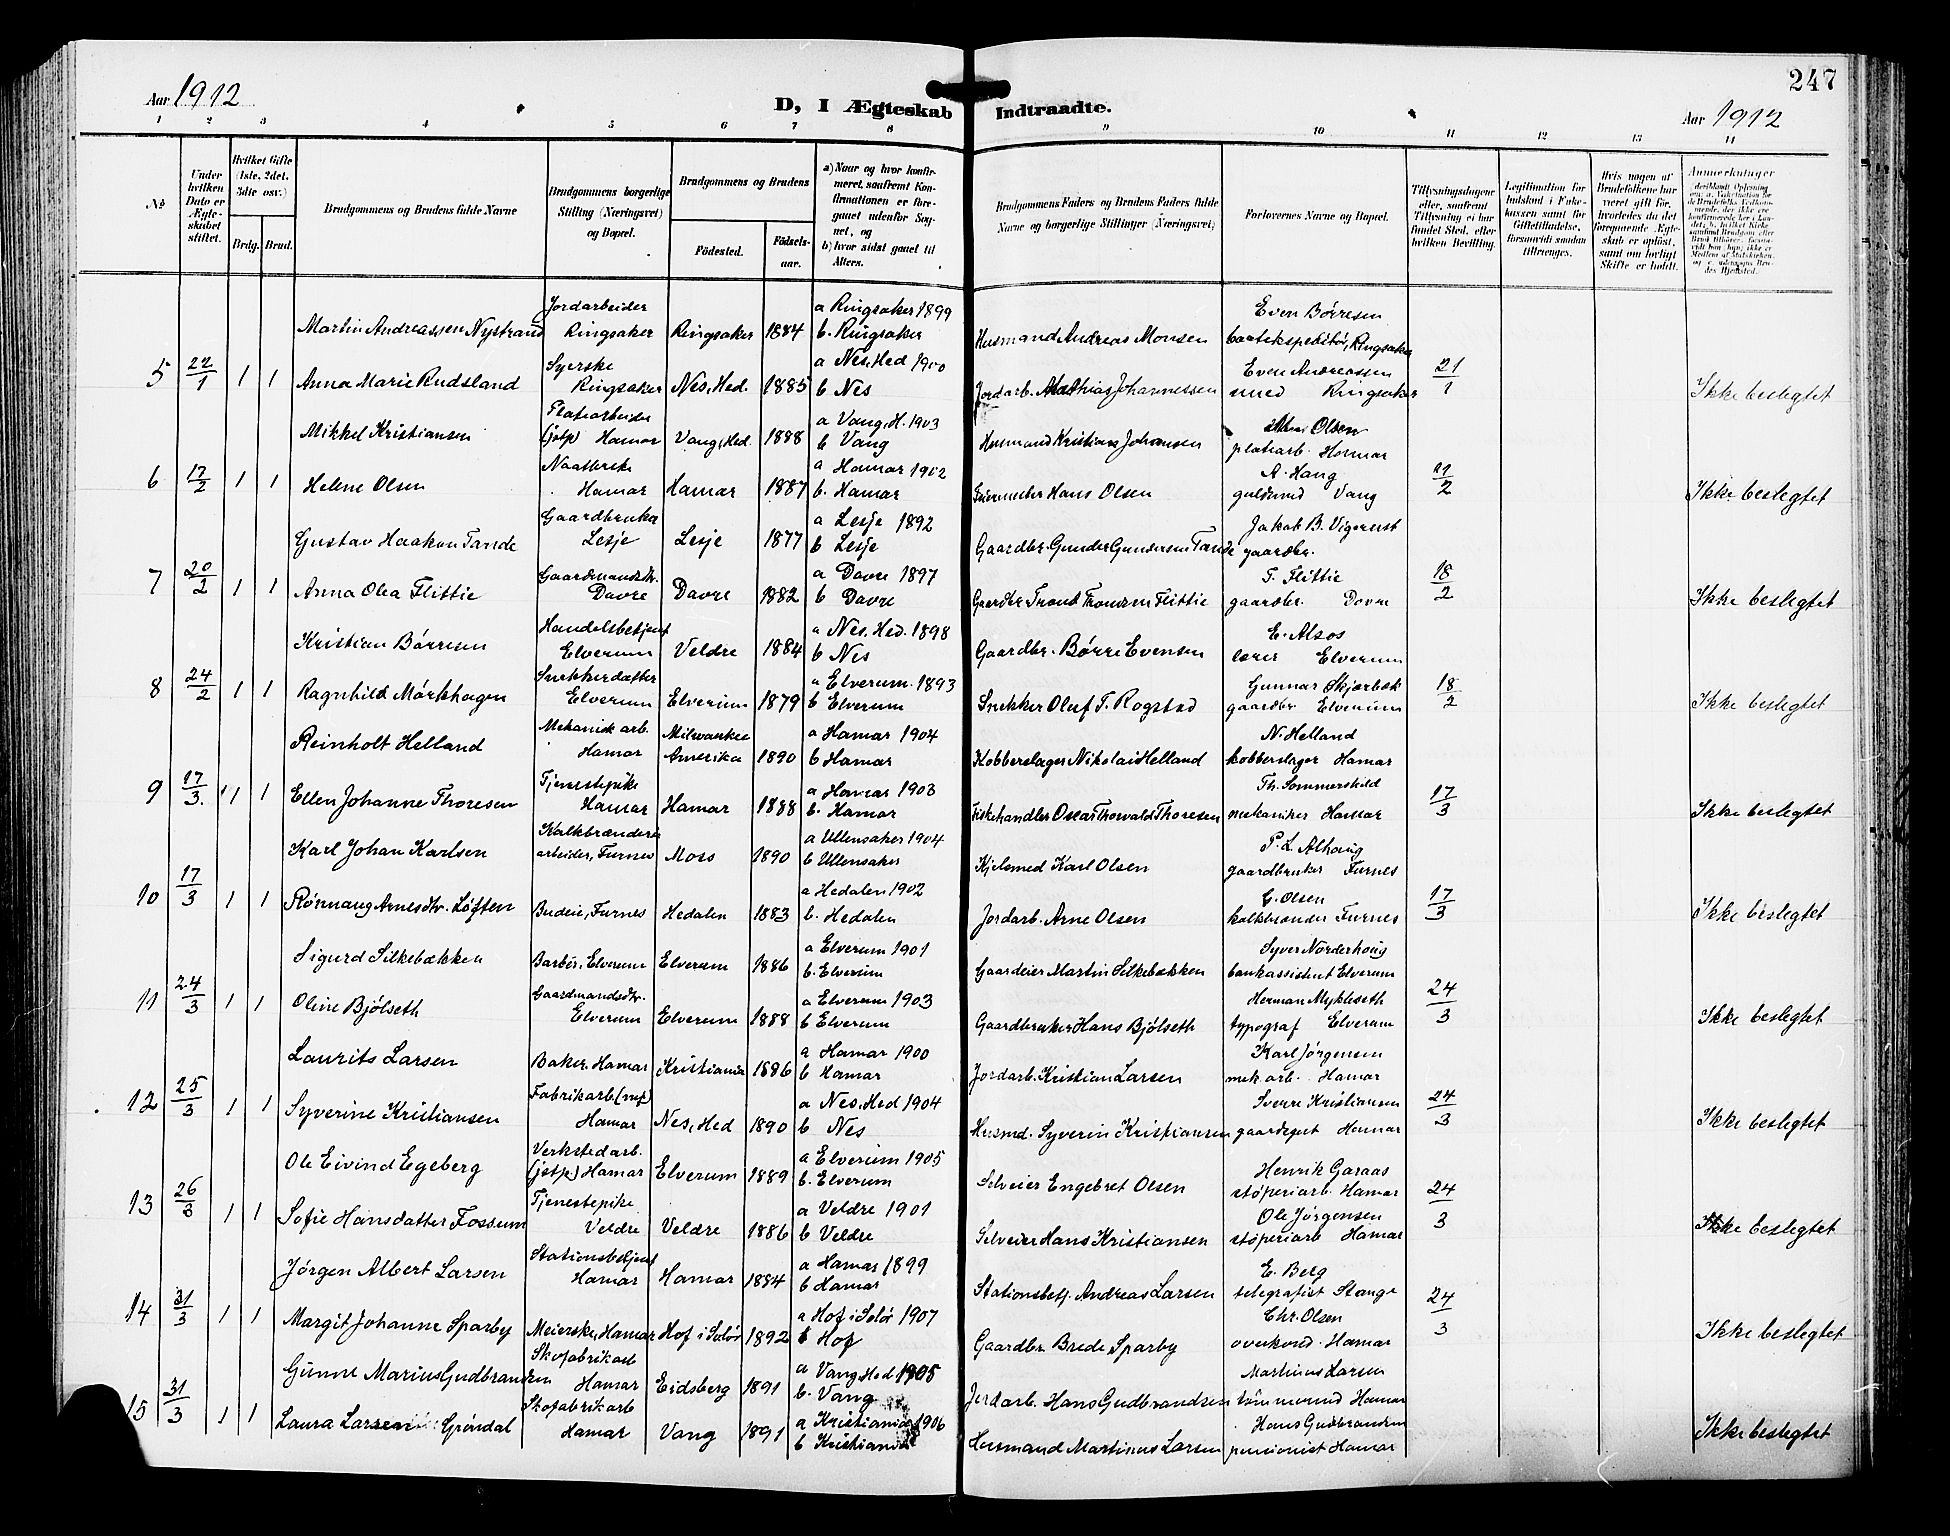 247
Aar 1912
D, I Ægteskab Indtraadte.
Aar 1912
1 2 3 4 5 6 7 8 9 10 11 12 13 14
No
Under hvilken Dato er Ægteskabet stiftet.
Hvilket Gifte (1ste, 2det, 3die osv.)
Brdg. Brud.
Brudgommens og Brudens fulde Navne
Brudgommens borgerlige Stilling (Næringsvei) og Bopæl.
Brudgommens og Brudens
Födested. Födselsaar.
a) Naar og hvor konfirmeret, saafremt Konfirmationen er foregaaet udenfor Sognet, og b) hvor sidst gaaet til Alters.
Brudgommens Faders og Brudens Faders fulde Navne og borgerlige Stillinger (Næringsvei)
Forlovernes Navne og Bopæl.
Tillysningsdagene eller, saafremt Tillysning ei har fundet Sted, efter hvilken Bevilling.
Legitimation for Indskud i Enkekassen samt for Giftetilladelse, forsaavidt saadan tiltrænges.
Hvis nogen af Brudefolkene har været gift før, hvorledes da det foregaaende Ægteskab er oplöst, samt om lovligt Skifte er holdt.
Anmerkninger
Martin Andreassen Nystrand Jordarbeider Ringsaker Ringsaker 1884 a Ringsaker 1899 b. Ringsaker Husmand Andreas Monsen Even Børresen baatekspeditör, Ringsaker
5 22/1 1 1 Anna Marie Rudsland Syerske Ringsaker Nes, Hed. 1885 a Nes, Hed 1900 b Nes Jordarb. Mathias Johannessen Even Andreassen smed Ringsaker 21/1 Ikke beslegtet
Mikkel Kristiansen Platearbeider (jstp) Hamar Vang, Hed. 1888 a Vang, H. 1903 b Vang Husmand Kristian Johansen Olsen platearb. Hamar
6 17/2 1 1 Helene Olsen Hamar Hamar 1887 a Hamar 1902 b. Hamar Hans Olsen A. Haug guldsmed Vang 2 Ikke beslegtet
Gustav Haakon Tande Gaardbruker Lesje Lesje 1877 a Lesje 1892 b Lesje Gaardbr. Gunder Gundersen Tande Jakob B. Vigerust gaardbr.
7 20/2 1 1 Anna Olea Flittie Gaardmandsdtr. Dovre Dovre 1882 a Dovre 1897 b Dovre Gaardbr Trond Trondsen Flittie T. Flittie gaardbr. Dovre 18/2 Ikke beslegtet
Kristian Börresen Handelsbetjent Elverum Veldre 1884 a Nes, Hed. 1898 b Nes Gaardbr. Børre Evensen E. Alsos lærer Elverum
8 24/2 1 1 Ragnhild Mørkhagen Snekkerdatter Elverum Elverum 1879 a Elverum. 1893 b Elverum Snekker Oluf T. Rogstad Gunnar Skjærbæk gaardbr Elverum 18/2 Ikke beslegtet
Reinholt Helland Mekanisk arb. Hamar Milwaukee Amerika 1890 a Hamar 1904 b Hamar Kobberslager Nikolai Helland N. Helland kobberslager Hamar
9 17/3. 1 1 Ellen Johanne Thoresen Tjenestepike Hamar Hamar 1888 a Hamar 1903 b. Hamar Fiskehandler Oscar Thorvald Thoresen Th. Sommershild mekaniker Hamar 17/3 Ikke beslegtet
Karl Johan Karlsen Kalkbrænderarbeider, Furnes Moss 1890 a Ullensaker 1904 b Ullensaker Kjelsmed Karl Olsen P. L. Alhaug gaardbruker Furnes
10 17/3 1 1 Rönnaug Arnesdtr. Løften Budeie, Furnes Hedalen 1883 a Hedalen 1902 b. Hedalen Jordarb. Arne Olsen Olsen kalkbrænder Furnes 17/3 Ikke beslegtet
Sigurd Silkebækken Barbér, Elverum Elverum 1886 a Elverum 1901 b. Elverum Gaardeier Martin Silkebækken Syver Norderhaug bankassistent Elverum
11 24/3 1 1 Oline Bjölseth Gaardmandsdtr. Elverum Elverum 1888 a Elverum 1903 b Elverum Gaardbruker Hans Bjölseth Herman Mykleseth typograf Elverum 24/3 Ikke beslegtet
Laurits Larsen Baker, Hamar Kristiania 1886 a Hamar 1900 b Hamar Jordarb. Kristian Larsen Karl Jörgensen mek. arb. Hamar
12 25/3 1 1 Syverine Kristiansen Fabrikarb Hamar Nes, Hed 1890 a Nes, Hed 1904 b Nes Husmd. Syverin Kristiansen Sverre Kristiansen gaardsgut Hamar 24/3 Ikke beslegtet
Ole Eivind Egeberg Verkstedarb. (jstp) Hamar Elverum 1889 a Elverum 1905 b. Elverum Selveier Engebret Olsen Henrik Garaas støperiarb. Hamar
13 26/3 1 1 Sofie Hansdatter Fossum Tjenestepike Veldre Veldre 1886 a Veldre 1901 b Veldre Selveier Hans Kristiansen Ole Jørgensen støperiarb Hamar 24/3 Ikke beslegtet
Jørgen Albert Larsen Stationsbetjent Hamar Hamar 1884 a Hamar 1899 b Hamar Stationsbetj. Andreas Larsen E. Berg telegrafist Stange
14 31/3 1 1 Margit Johanne Sparby Meierske, Hamar Hof i Solør 1892 a Hof i Solør 1907 b Hof Gaardbr Brede Sparby Chr. Olsen overkond. Hamar 24/3 Ikke beslegtet
Gunne Marius Gudbrandsen Skofabrikarb Hamar Eidsberg 1891 a Vang Hed 1905 b. Vang Jordarb. Hans Gudbrandsen Martinus Larsen tømmermd Hamar
15 31/3 1 1 Laura Larsen Gröndal Skofabrikarb Hamar Vang 1891 a Kristiania 1906 b Kristiania Husmand Martinus Larsen Hans Gudbrandsen pensionist Hamar Ikke beslegtet